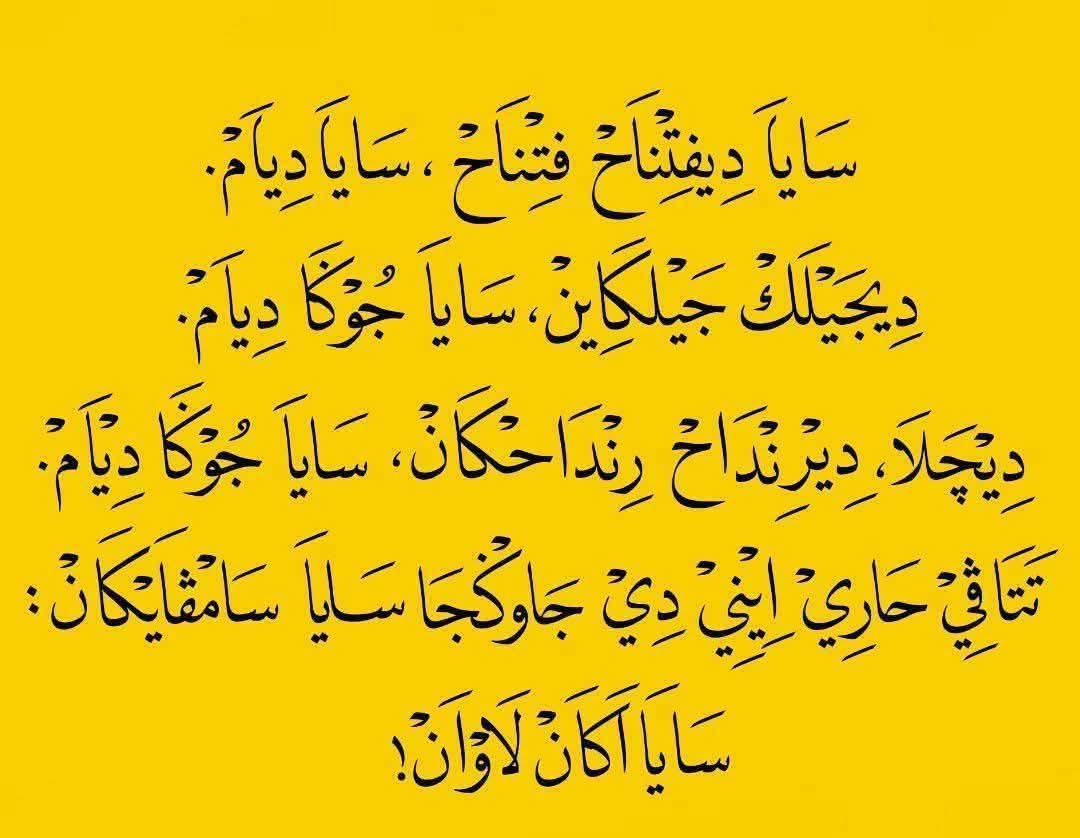 سَاياَ دِيفِتْنَاحْ فِتْنَاحْ ، سَاياَ دِياَمْ.
دِيجَيْلَكْ جَيْلَكَاِينْ، سَاياَ جُوْݢَا دِياَمْ.
دِيْچَلاَ، دِيْرِنْدَاحْ رِنْدَاحْكَانْ، سَاياَ جُوْݢَا دِيْاَمْ.
تَتَاڤِيْ حَارِيْ اِيْنِيْ دِيْ جَاوݢْجَا سَاياَ سَامْڤَايْكَانْ:
سَاياَ اَكَانْ لَاوَانْ!